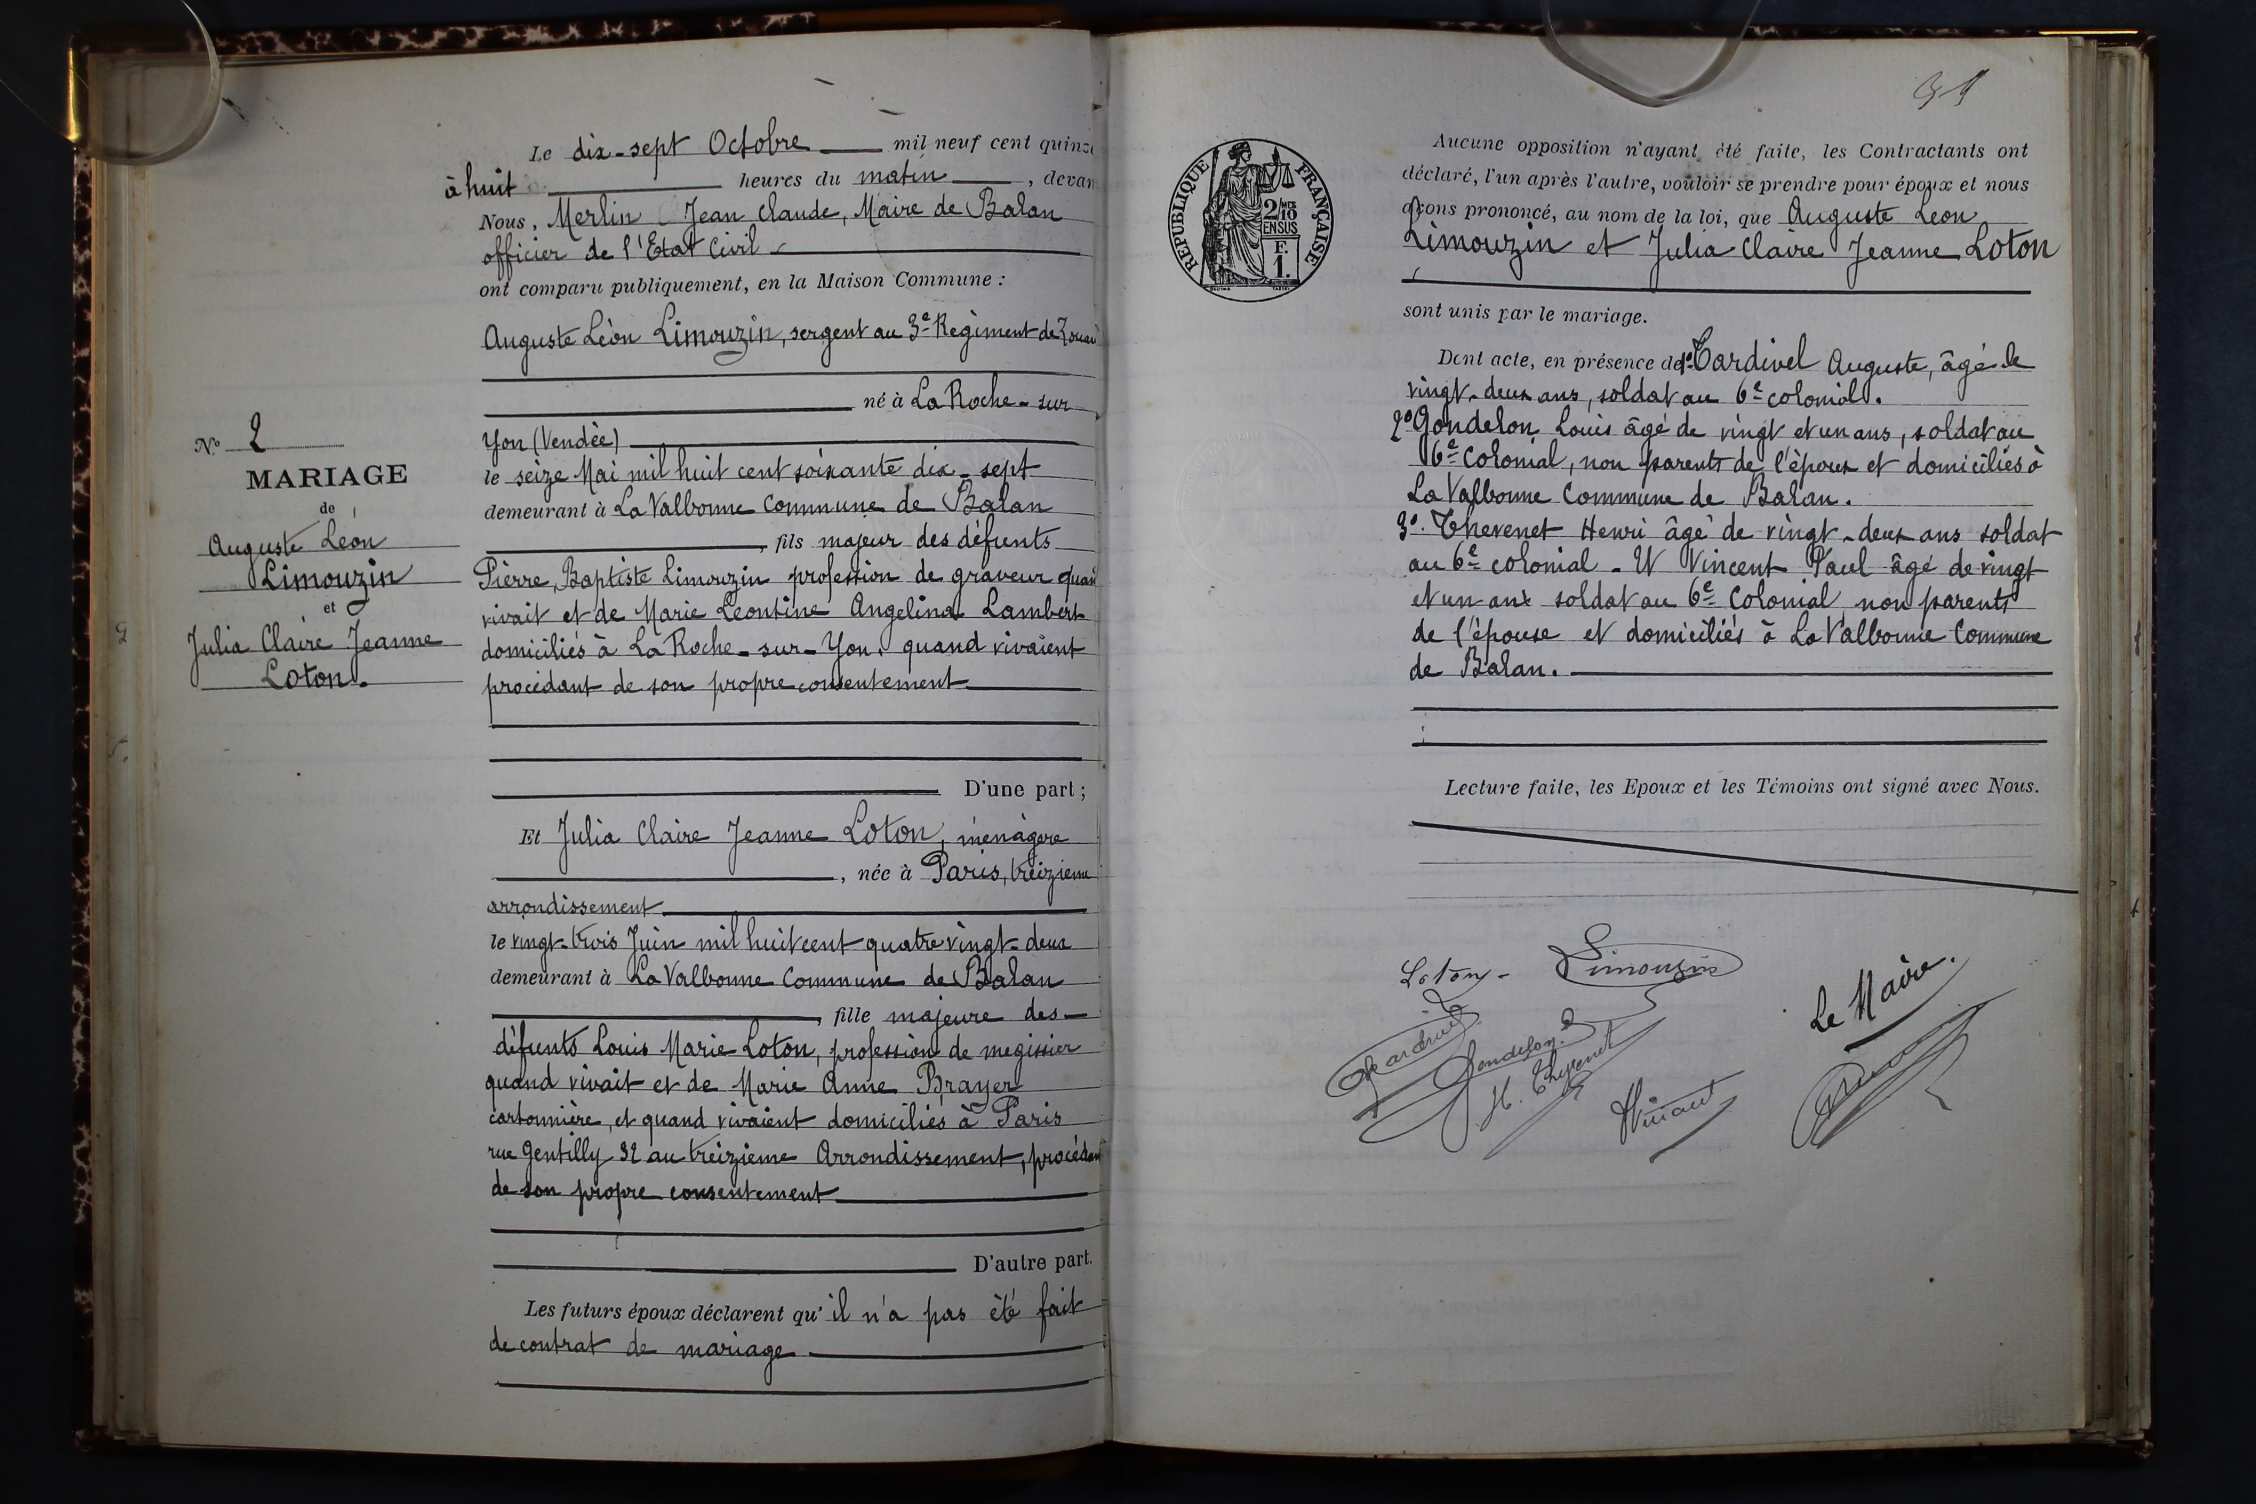 Le dix-sept Octobre mil neuf cent quinz
à huit heures du matin, devan
Nous, Merlin Jean Claude, Maire de Balan
officier de l'Etat Civil
ont comparu publiquement, en la Maison Commune :
Auguste Léon Limouzin, sergent au 3e Régiment de Zouav
né à La Roche-sur
Yon (Vendée)
le seize Mai mil huit cent soixante dix-sept
demeurant à La Valbonne Commune de Balan
, fils majeur des défunts
Pierre, Baptiste Limouzin profession de graveur quan
vivait et de Marie Léontine Angelina Lambert
domiciliés à La Roche-sur-Yon, quand vivaient
procédant de son propre consentement
N° 2
MARIAGE
de
Auguste Léon
Limouzin
et
Julia Claire Jeanne
Loton.
D'une part ;
Et Julia Claire Jeanne Loton, ménagère
, née à Paris, treizième
arrondissement
le vingt-trois Juin mil huit cent quatre vingt-deux
demeurant à La Valbonne Commune de Balan
, fille majeure des
défunts Louis Marie Loton, profession de megissier
quand vivait et de Marie Anne Brayer
cartonnière, et quand vivaient domiciliés à Paris
rue Gentilly 32 au treizième Arrondissement, procédan
de son propre consentement
D'autre part.
Les futurs époux déclarent qu'il n'a pas été fait
de contrat de mariage
RÉPUBLIQUE FRANÇAISE
2/10 MES
EN SUS
F.
1.
Aucune opposition n'ayant été faite, les Contractants ont
déclaré, l'un après l'autre, vouloir se prendre pour époux et nous
avons prononcé, au nom de la loi, que Auguste Léon
Limouzin et Julia Claire Jeanne Loton
sont unis par le mariage.
Dont acte, en présence de 1° Tardivel Auguste, âgé de
vingt-deux ans, soldat au 6e colonial.
2° Gondelon Louis âgé de vingt et un ans, soldat au
6e Colonial, non parents de l'époux et domiciliés à
La Valbonne Commune de Balan.
3°. Thevenet Henri âgé de vingt-deux ans soldat
au 6e colonial - Et Vincent Paul âgé de vingt
et un ans soldat au 6e Colonial non parents
de l'épouse et domiciliés à La Valbonne Commune
de Balan.
Lecture faite, les Epoux et les Témoins ont signé avec Nous.
Loton
Limouzin
Tardivel
Gondelon
H. Thevenet
Vincent
Le Maire.